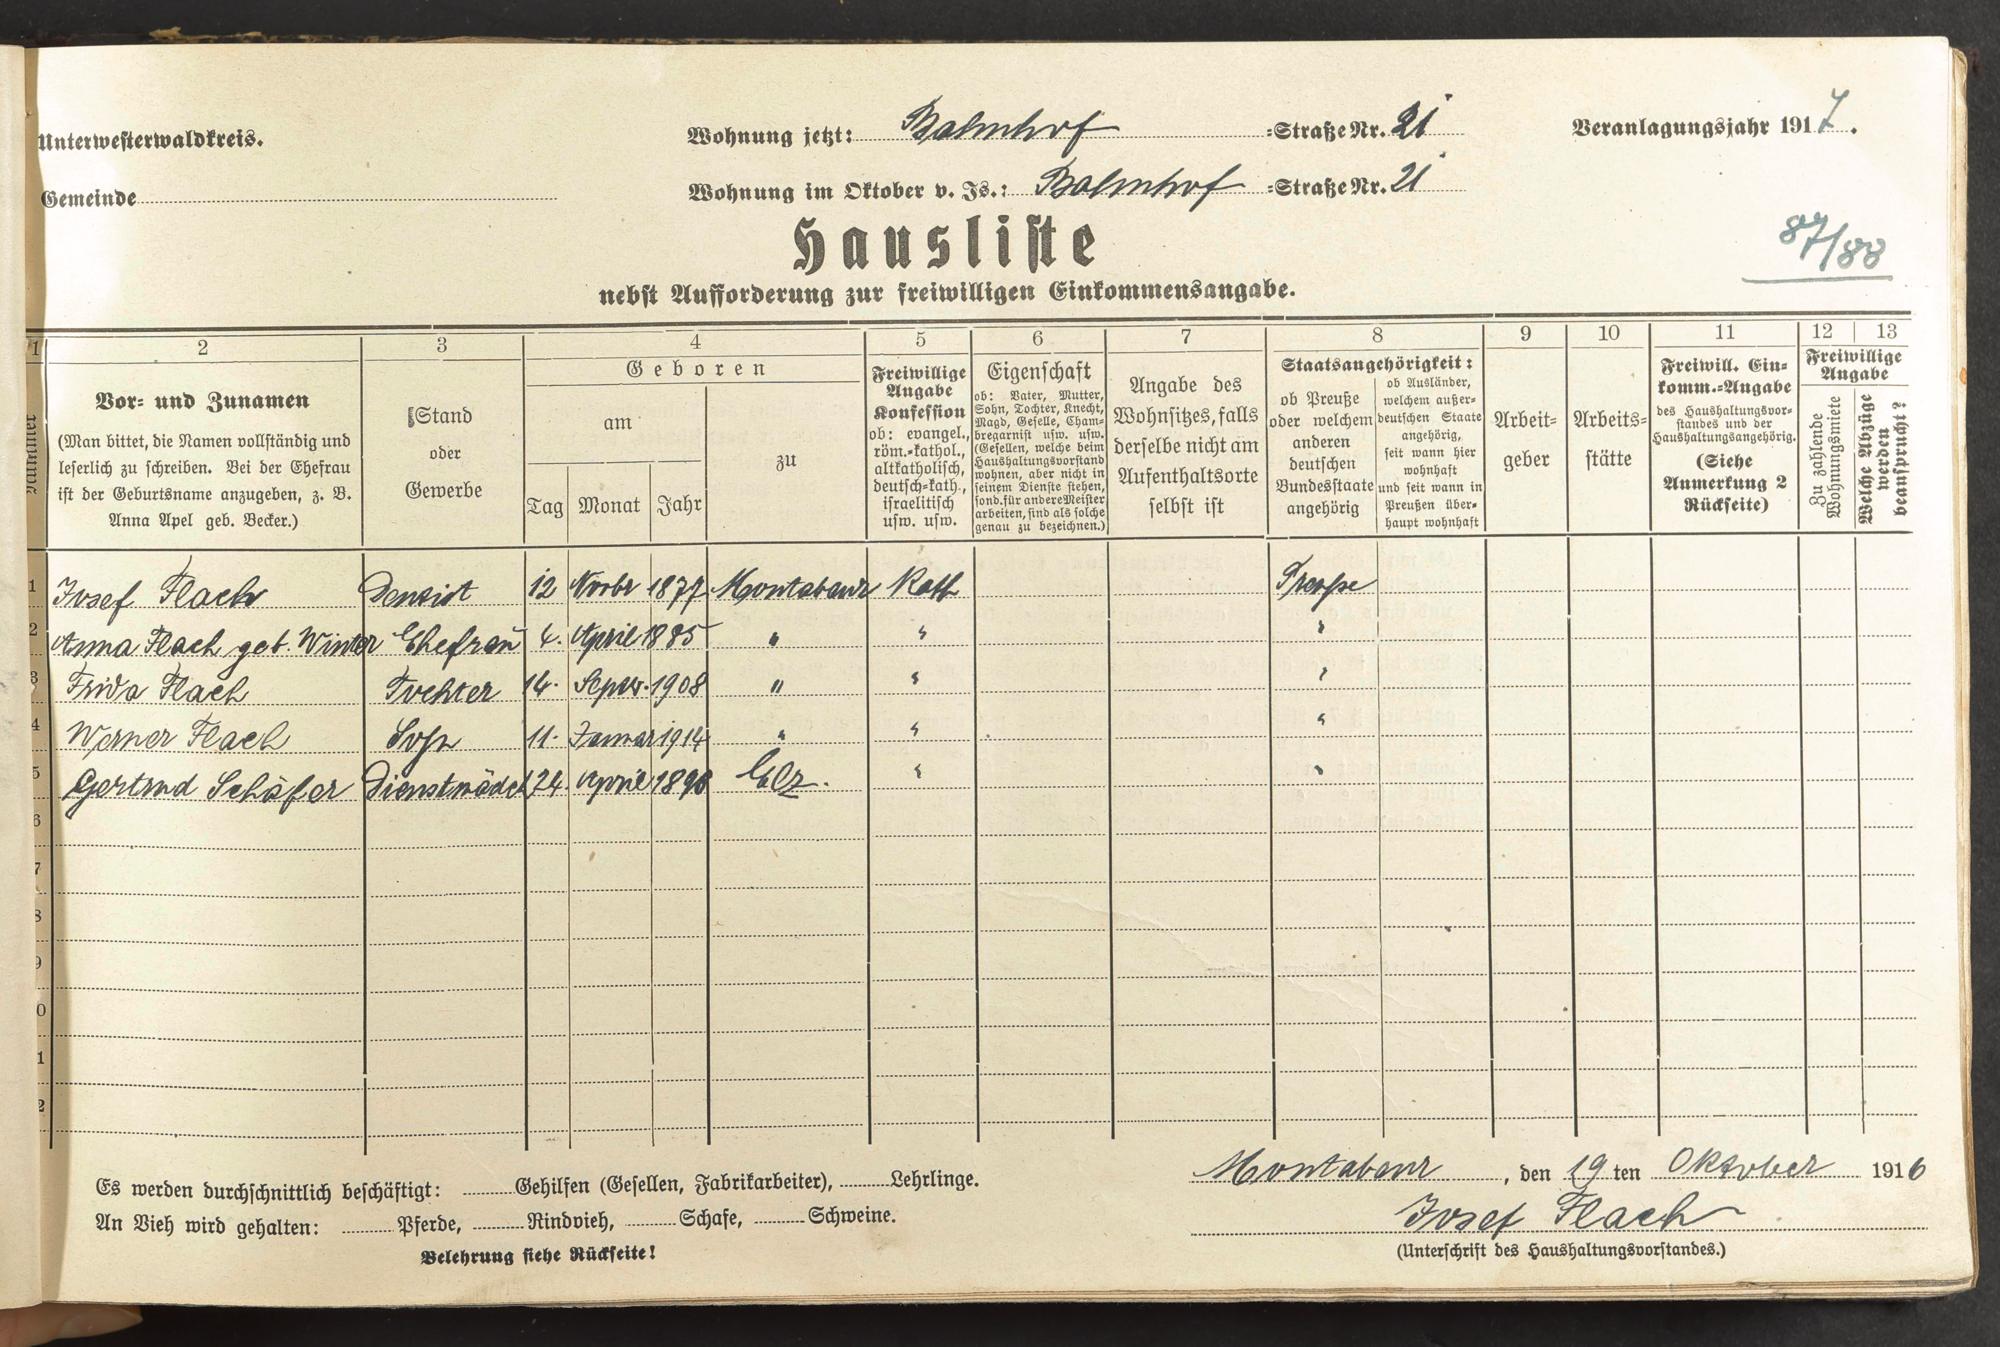 Unterwesterwaldkreis.
Wohnung jetzt: Bahnhof -Straße Nr. 21
Veranlagungsjahr 1917.
Gemeinde
Wohnung im Oktober v. Js.: Bahnhof -Straße Nr. 21
Hausliste
87/88
nebst Aufforderung zur freiwilligen Einkommensangabe.
1 2 3 4 5 6 7 8 9 10 11 12 13
Nummer
Vor- und Zunamen
(Man bittet, die Namen vollständig und
leserlich zu schreiben. Bei der Ehefrau
ist der Geburtsname anzugeben, z. B.
Anna Apel geb. Becker.)
Stand
oder
Gewerbe
Geboren
am
Tag Monat Jahr
zu
Freiwillige
Angabe
Konfession
ob: evangel.,
röm.-kathol.,
altkatholisch,
deutsch-kath.,
israelitisch
usw. usw.
Eigenschaft
ob: Vater, Mutter,
Sohn, Tochter, Knecht,
Magd, Geselle, Cham-
bregarnist usw. usw.
(Gesellen, welche beim
Haushaltungsvorstand
wohnen, aber nicht in
seinem Dienste stehen,
sond. für andere Meister
arbeiten, sind als solche
genau zu bezeichnen.)
Angabe des
Wohnsitzes, falls
derselbe nicht am
Aufenthaltsorte
selbst ist
Staatsangehörigkeit:
ob Preuße
oder welchem
anderen
deutschen
Bundesstaate
angehörig
ob Ausländer,
welchem außer-
deutschen Staate
angehörig,
seit wann hier
wohnhaft
und seit wann in
Preußen über-
haupt wohnhaft
Arbeit-
geber
Arbeits-
stätte
Freiwill. Ein-
komm.-Angabe
des Haushaltungsvor-
standes und der
Haushaltungsangehörig.
(Siehe
Anmerkung 2
Rückseite)
Freiwillige
Angabe
Zu zahlende
Wohnungsmiete
Welche Abzüge
werden
beansprucht?
1 Josef Flach Dentist 12 Novbr 1877 Montabaur Kath Preuße
2 Anna Flach geb. Winter Ehefrau 4. April 1885 " " "
3 Frida Flach Tochter 14. Septbr. 1908 " " "
4 Werner Flach Sohn 11. Januar 1914 " " "
5 Gertrud Schäfer Dienstmädch 24. April 1898 Elz. " "
6
7
8
9
0
1
2
Es werden durchschnittlich beschäftigt: Gehilfen (Gesellen, Fabrikarbeiter), Lehrlinge.
An Vieh wird gehalten: Pferde, Rindvieh, Schafe, Schweine.
Belehrung siehe Rückseite!
Montabaur, den 19ten Oktober 1916
Josef Flach
(Unterschrift des Haushaltungsvorstandes.)